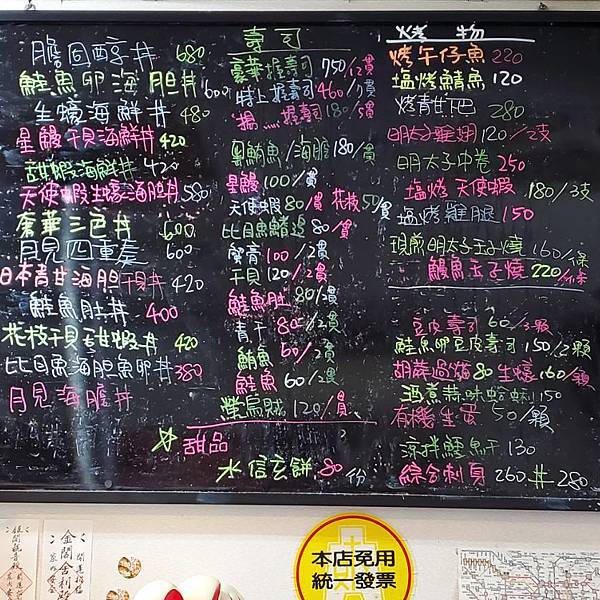 膽固醇丼 680
鮭魚卵海胆丼 600
生蠔海鮮丼 480
星鰻干貝海鮮丼 420
甜蝦海鮮丼 420
天使蝦生蠔海胆丼 580
奢華三色丼 600
月見四重奏 600
日本青甘海胆干貝丼 420
鮭魚肚丼 400
花枝干貝甜蝦丼 420
比目魚海胆魚卵丼 380
月見海膽丼
壽司
豪華握壽司 750/12貫
特上握壽司 460/7貫
握壽司 180/5貫
黑鮪魚/海膽 180/貫
星鰻 100/貫
天使蝦 80/貫 花枝 50/貫
比目魚鰭邊 80/貫
蟹膏 100/2貫
干貝 120/2貫
鮭魚肚 80/2貫
青干 80/2貫
鮪魚 60/2貫
鮭魚 60/2貫
螢烏賊 120/貫
甜品
信玄餅 80 份
烤物
烤午仔魚 220
塩烤鯖魚 120
烤青甘下巴 280
明太子雞翅 120/2支
明太子中卷 250
塩烤天使蝦 180/3支
塩烤雞腿 150
現煎明太子玉子燒 160/條
鰻魚玉子燒 220/條
豆皮壽司 60/3顆
鮭魚卵豆皮壽司 150/2顆
胡麻過貓 80 生蠔 160/顆
酒煮蒜味蛤蜊 150
有機生蛋 50/顆
涼拌鱈魚干 130
綜合刺身 260 丼 280
本店免用
統一發票
金閣舍利殿
銀閣觀音殿
開運招福